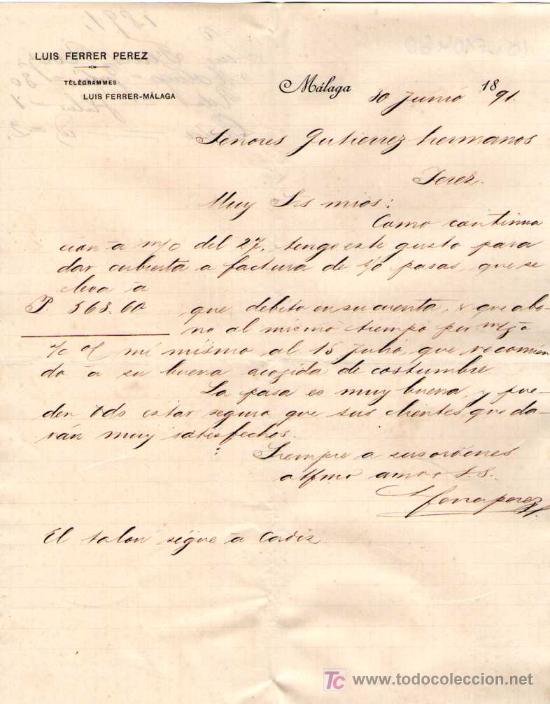 LUIS FERRER PEREZ
TÉLÉGRAMMES
LUIS FERRER-MÁLAGA
Málaga 30 Junio 1891.
Señores Gutierrez hermanos
Jerez.
Muy Srs mios:
Como continua
cion á m/o del 27. tengo este gusto para
dar cubierta a factura de pasas, que se
eleva á
P 363.60 que debito en su cuenta, y que abo
no al mismo tiempo por
mi mismo al 15 Julio que recomien
do á su buena acogida de costumbre
La pasa es muy buena y pue
den Vds estar seguro que sus clientes queda
rán muy satisfechos.
Siempre a sus ordenes
affmo amo S.S.
El talon sigue a Cadiz
TC www.todocoleccion.net